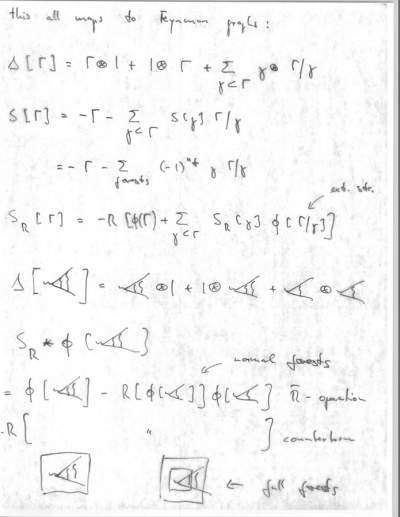 this all maps to Feynman graphs:
Δ[Γ] = Γ⊗1 + 1⊗Γ + Σ_{γ⊂Γ} γ⊗Γ/γ
S[Γ] = -Γ - Σ_{γ⊂Γ} S[γ] Γ/γ
= -Γ - Σ_{forests} (-1)^{nf} γ Γ/γ
ext. str.
S_R[Γ] = -R[ϕ(Γ) + Σ_{γ⊂Γ} S_R[γ] ϕ[Γ/γ]]
Δ[ ] = ⊗1 + 1⊗ + ⊗
S_R * ϕ[ ]
normal forests
= ϕ[ ] - R[ϕ[ ]] ϕ[ ] R̄-operation
-R[ " ] counterterm
← full forests